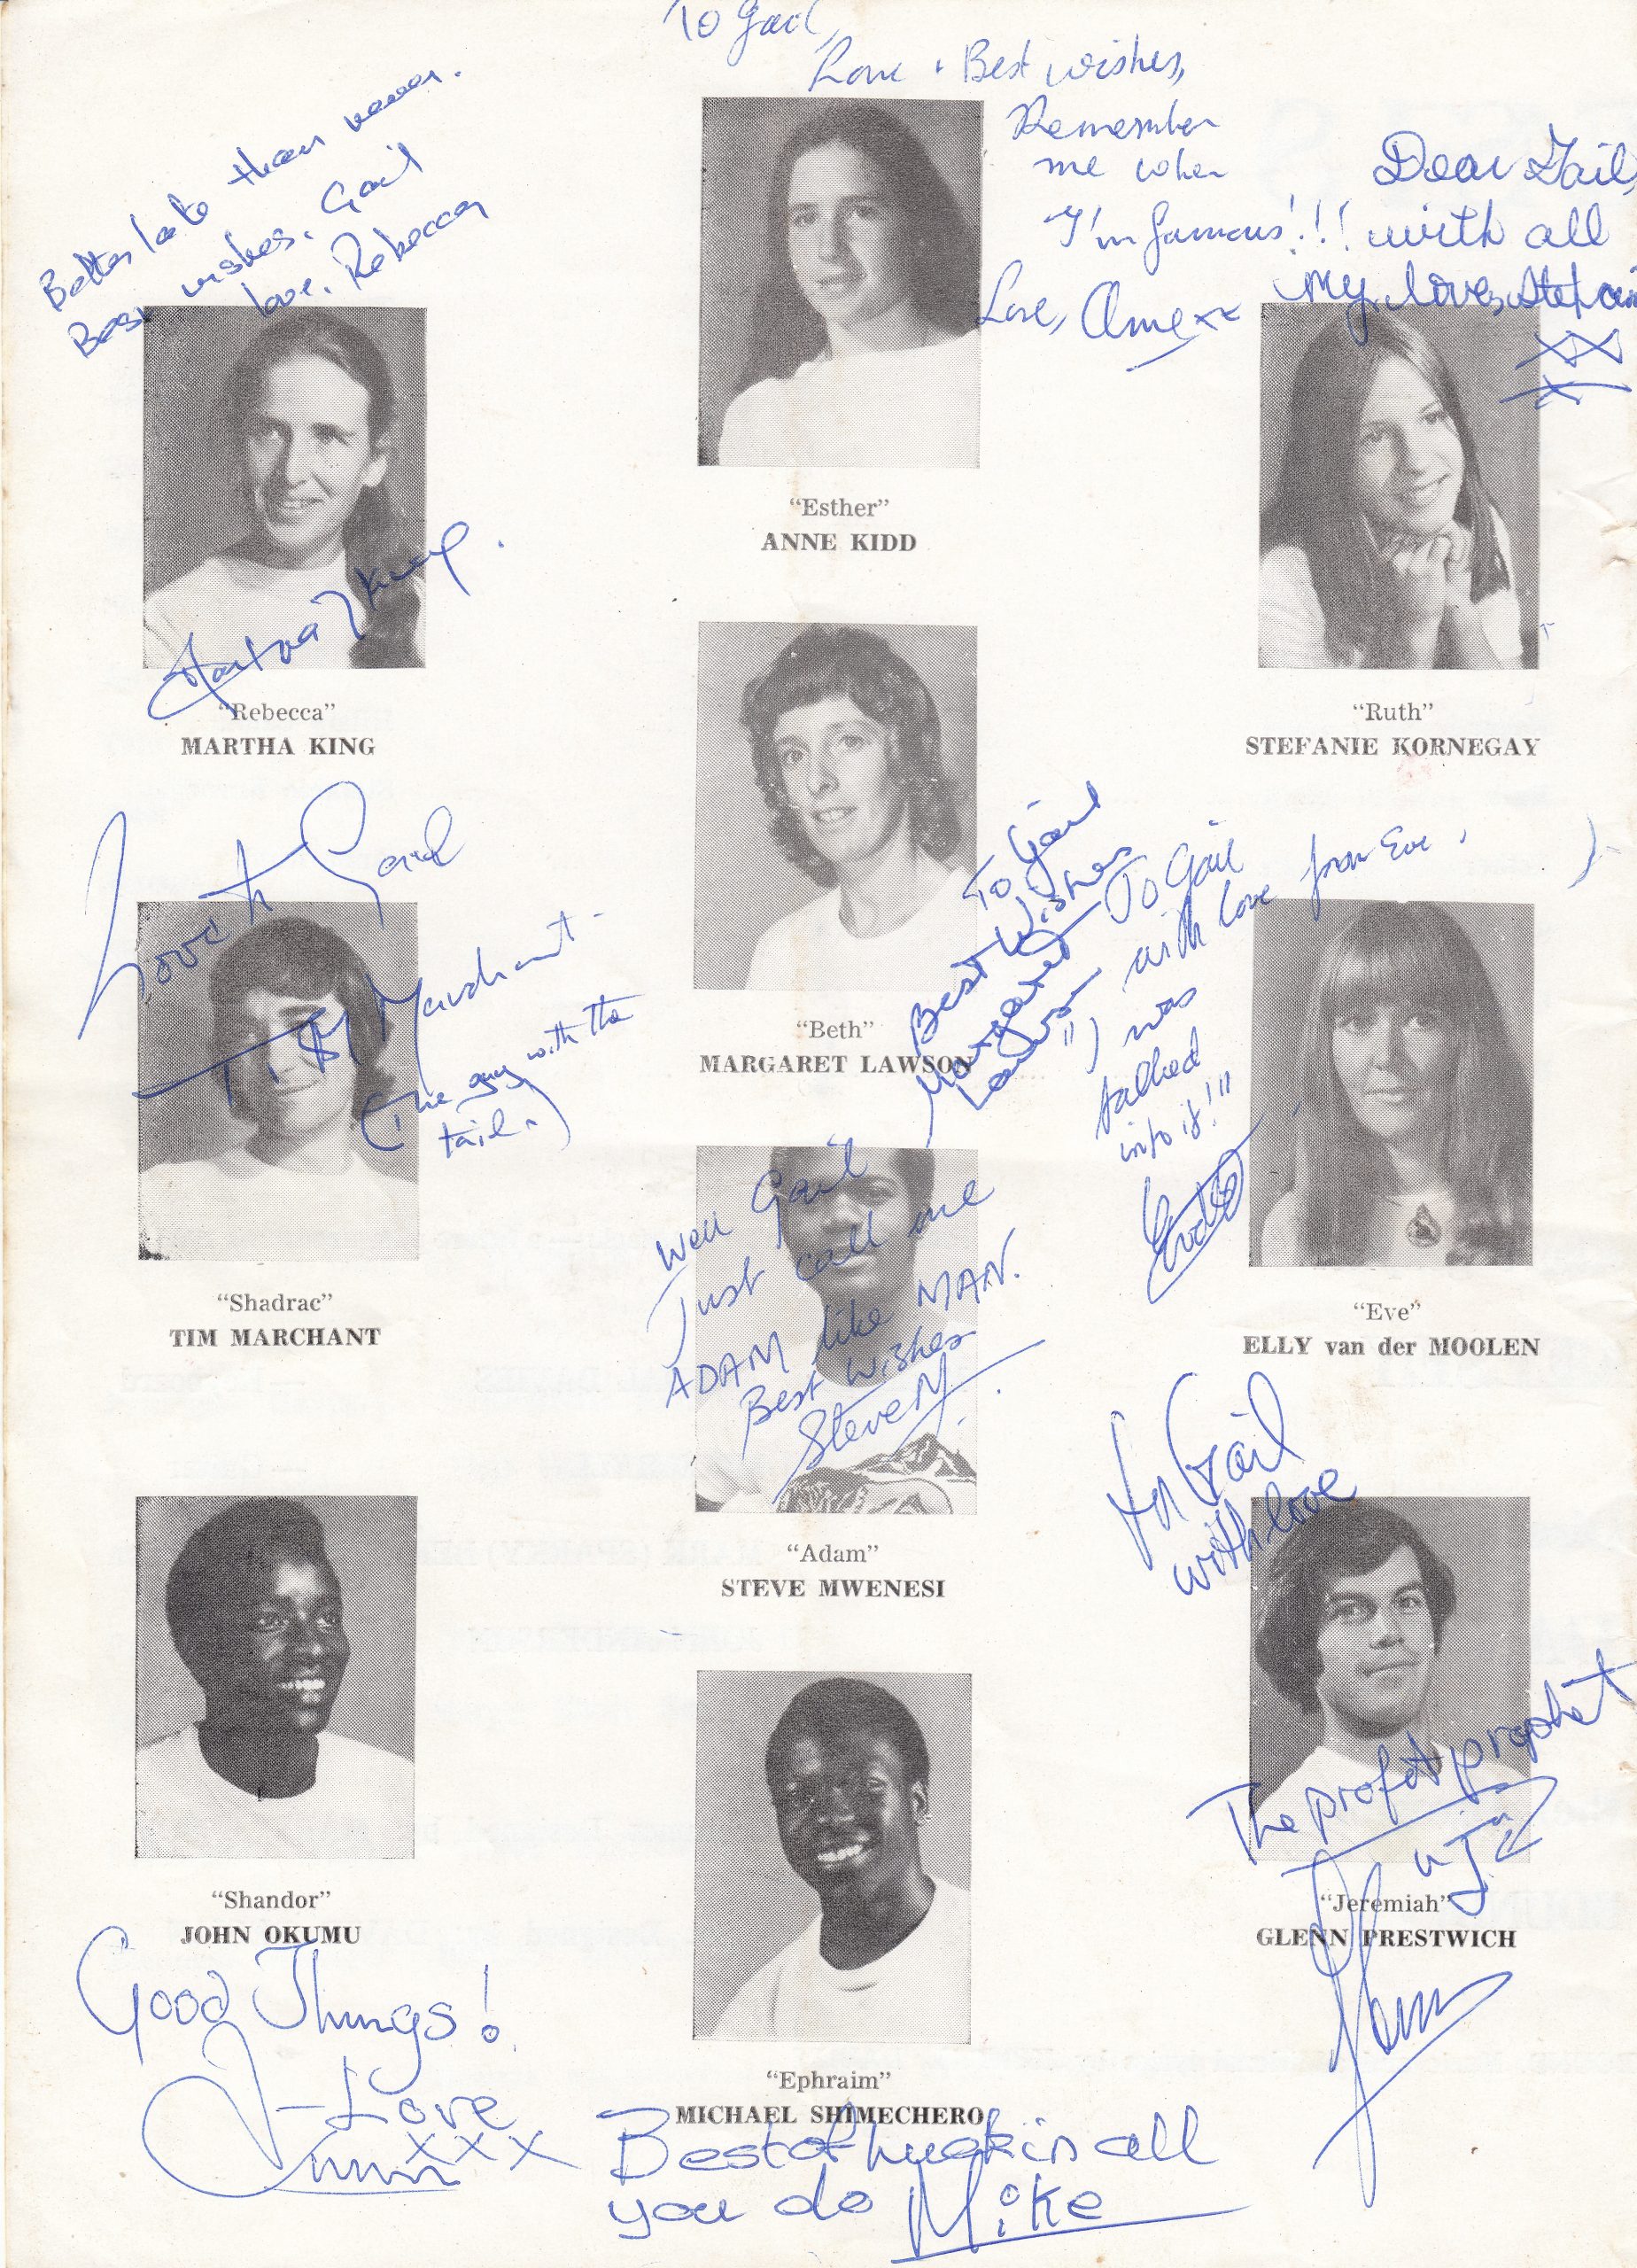 To Gail,
Love + Best wishes,
Remember
me when
I'm famous!!!
Love, Anne xx
Better late than never.
Best wishes, Gail
love, Rebecca
Dear Gail,
with all
my love, Stefanie
xx
x
"Esther"
ANNE KIDD
Martha King.
"Rebecca"
MARTHA KING
"Ruth"
STEFANIE KORNEGAY
Gail
Tim Marchant
(The guy with the
tail.)
"Beth"
MARGARET LAWSON
To Gail
Best Wishes
Margaret
Lawson
To Gail
with love from Eve.
"I was
talked
into it!"
"Shadrac"
TIM MARCHANT
Well Gail
Just call me
ADAM like MAN.
Best Wishes
Steve M
"Eve"
ELLY van der MOOLEN
"Adam"
STEVE MWENESI
To Gail
with love
The profit prophet
"Jeremiah"
GLENN PRESTWICH
Glenn
"Shandor"
JOHN OKUMU
Good Things!
- Love
xxx
"Ephraim"
MICHAEL SHIMECHERO
Best of luck in all
you do Mike